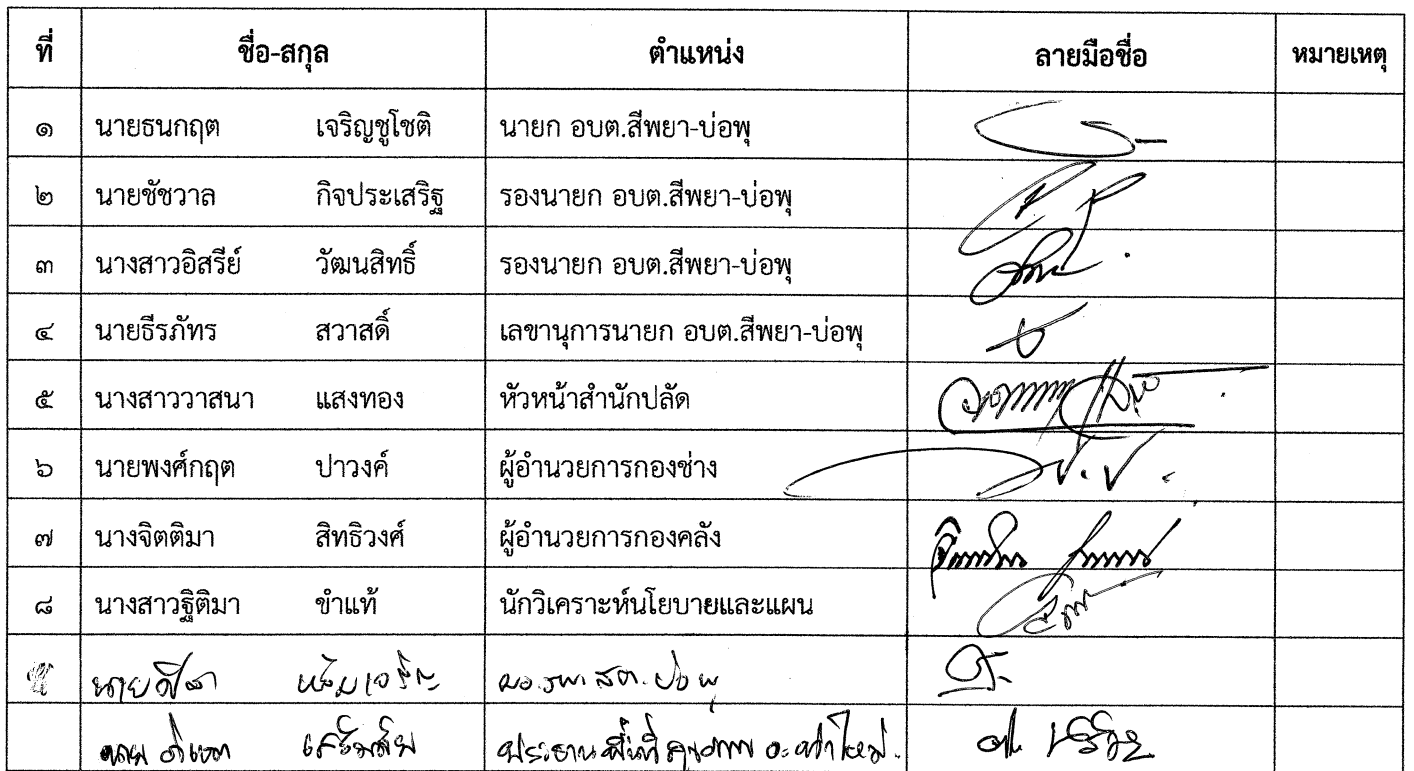 ที่ ชื่อ-สกุล ตำแหน่ง ลายมือชื่อ หมายเหตุ
๑ นายธนกฤต เจริญชูโชติ นายก อบต.สีพยา-บ่อพุ
๒ นายชัชวาล กิจประเสริฐ รองนายก อบต.สีพยา-บ่อพุ
๓ นางสาวอิสรีย์ วัฒนสิทธิ์ รองนายก อบต.สีพยา-บ่อพุ
๔ นายธีรภัทร สวาสดิ์ เลขานุการนายก อบต.สีพยา-บ่อพุ
๕ นางสาววาสนา แสงทอง หัวหน้าสำนักปลัด
๖ นายพงศ์กฤต ปาวงค์ ผู้อำนวยการกองช่าง
๗ นางจิตติมา สิทธิวงศ์ ผู้อำนวยการกองคลัง
๘ นางสาวฐิติมา ขำแท้ นักวิเคราะห์นโยบายและแผน
ผอ.รพ.สต.บ่อพุ